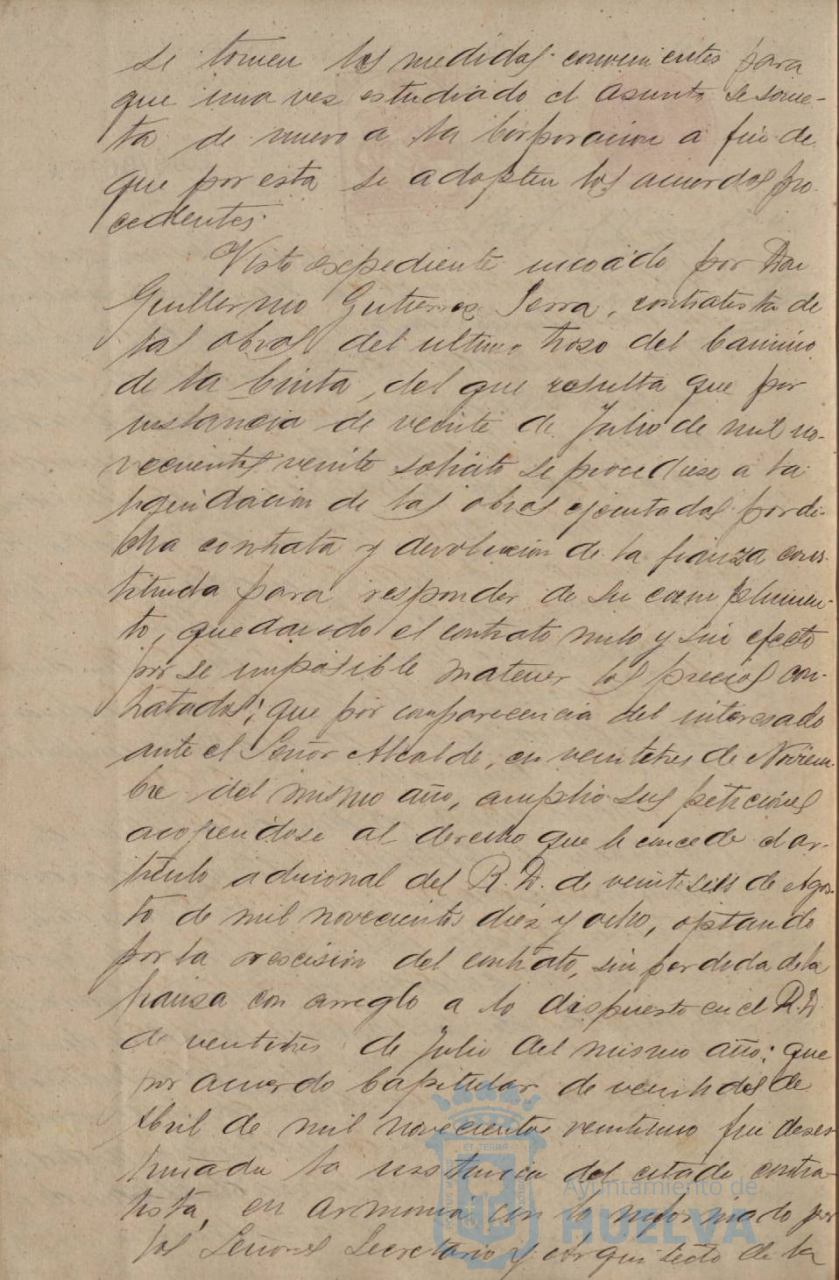 se tomen las medidas convenientes para
que una vez estudiado el asunto se some-
ta de nuevo a la Corporacion a fin de
que por esta se adopten los acuerdos pro-
cedentes.
Visto expediente incoado por Don
Guillermo Gutierrez Serra, contratista de
las obras del ultimo trozo del Camino
de la Cinta, del que resulta que por
instancia de veinte de Julio de mil no-
vecientos veinte solicito se procediese a la
liquidacion de las obras ejecutadas por di-
cha contrata y devolucion de la fianza cons-
tituida para responder de su cumplimien-
to, quedando el contrato nulo y sin efecto
por se imposible matener los precios con-
tratados; que por comparecencia del interesado
ante el Señor Alcalde, en veintitres de Noviem-
bre del mismo año, amplio sus peticiones
acogiendose al derecho que le concede el ar-
tículo adicional del R. D. de veintiseis de Agos-
to de mil novecientos diez y ocho, optando
por la rescision del contrato, sin perdida de la
fianza con arreglo a lo dispuesto en el R. D.
de veintitres de Julio del mismo año; que
por acuerdo Capitular de veintidos de
Abril de mil novecientos veintiuno fue deses-
timada la instancia del citado contra-
tista, en armonia con lo informado por
los Señores Secretario y arquitecto de la
Ayuntamiento de
HUELVA